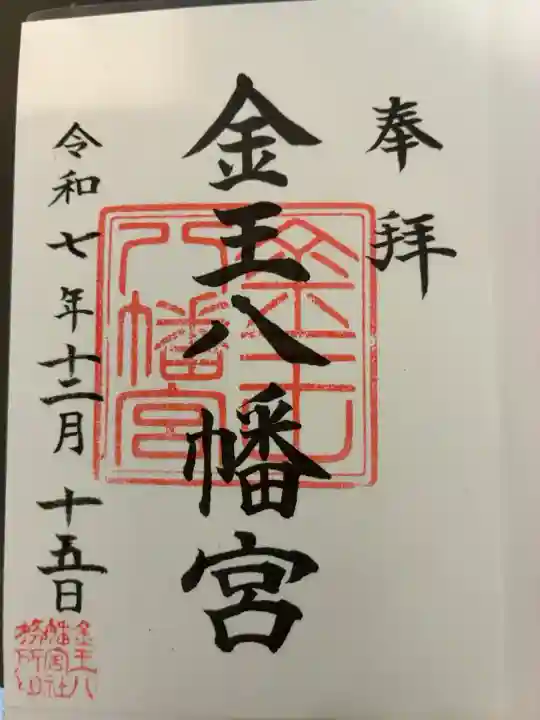 奉拝
金王八幡宮
金王八幡宮
令和七年十二月十五日
金王八幡宮社務所印